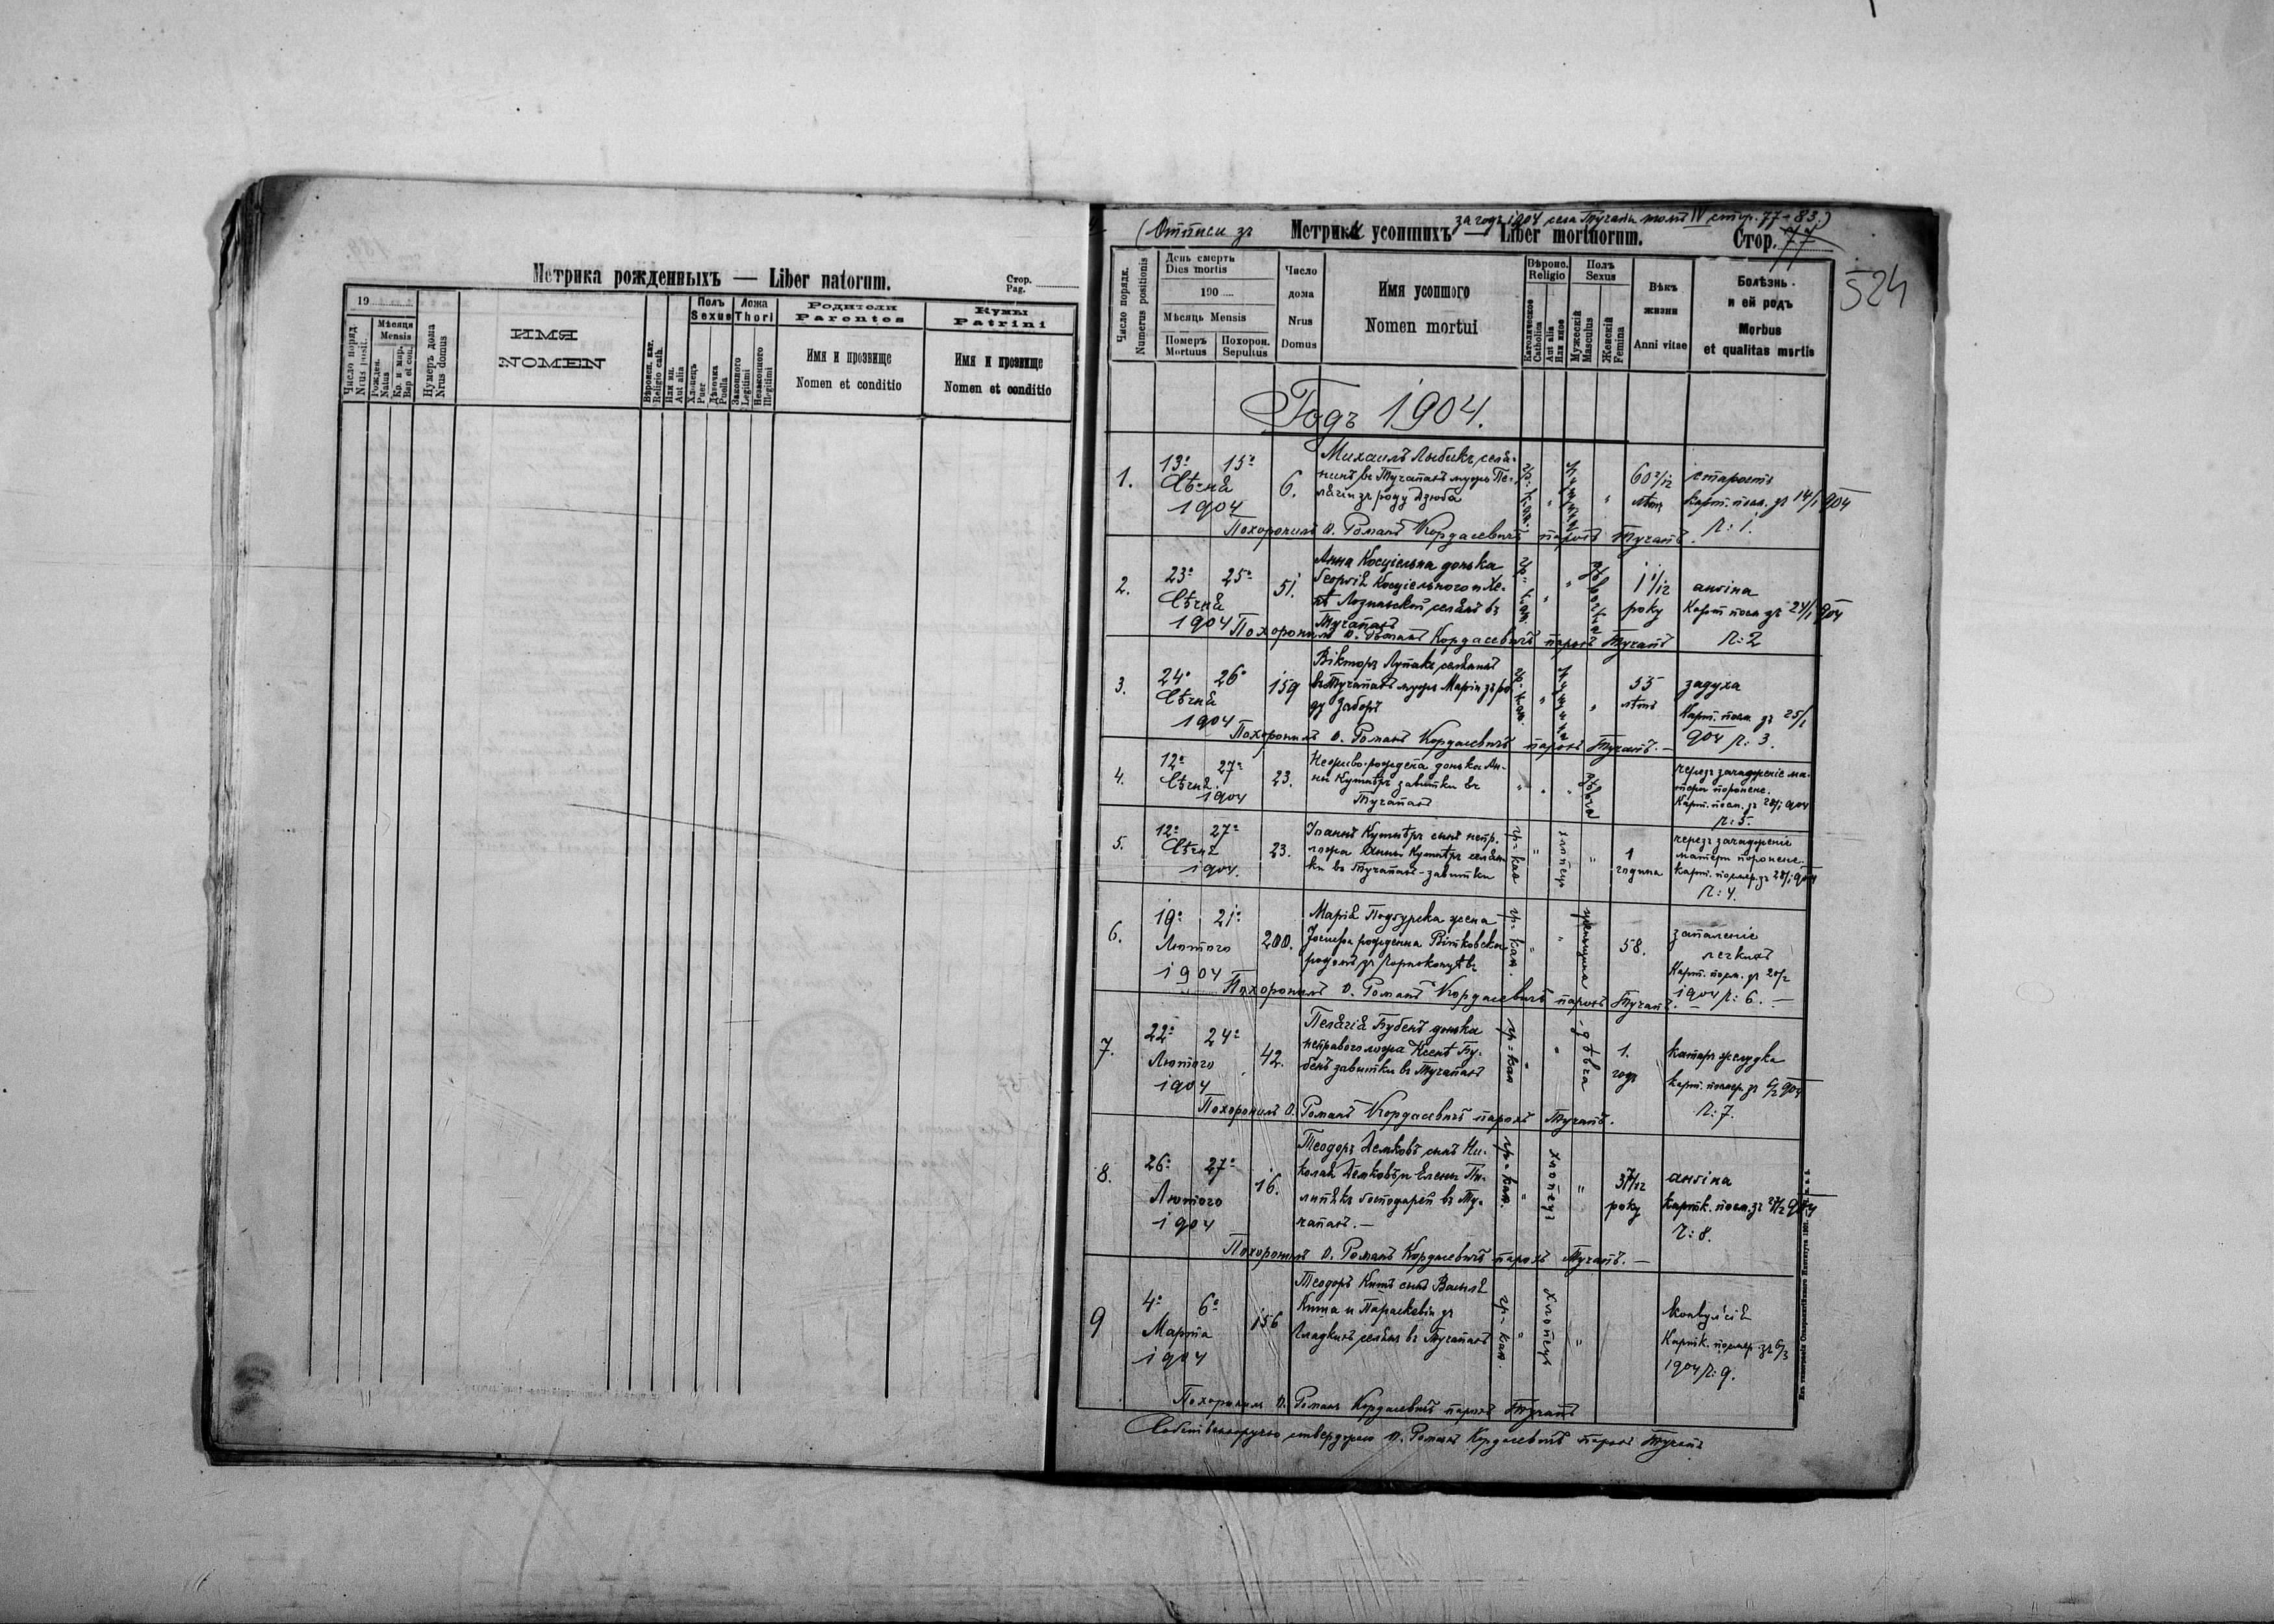 Метрика рожденныхъ — Liber natorum.
Стор.
Pag.
19
Число поряд.
Nrus posit.
Мѣсяця
Mensis
Рожден.
Natus
Кр. и мѵр.
Bap et con.
Нумеръ дома
Nrus domus
ИМЯ
NOMEN
Вѣроисп. кат.
Religio cath.
Или ин.
Aut alia
Полъ
Sexus
Хлопецъ
Puer
Дѣвочка
Puella
Ложа
Thori
Законного
Legitimi
Незаконного
Illegitimi
Родители
Parentes
Имя и прозвище
Nomen et conditio
Кумы
Patrini
Имя и прозвище
Nomen et conditio
за годъ 1904 села Тучапи томъ IV стор. 77-83.)
(Отписи зъ Метрики усопшихъ — Liber mortuorum. Стор. 77
524
Число порядк.
Numerus positionis
День смерти
Dies mortis
190
Мѣсяць Mensis
Померъ
Mortuus
Похорон.
Sepultus
Число
дома
Nrus
Domus
Имя усопшого
Nomen mortui
Вѣроис.
Religio
Католическое
Catholica
Aut alia
Или иное
Полъ
Sexus
Мужескій
Masculus
Женскій
Femina
Вѣкъ
жизни
Anni vitae
Болѣзнь
и ей родъ
Morbus
et qualitas mortis
Годъ 1904.
1. 13. 15. Сѣчня 1904 6.
Михаилъ Лыбикъ селя-
нинъ въ Тучапахъ мужъ Пе-
лягіи зъ роду Дзюба
гр.-кат. " мужчина " 60 2/12 лѣтъ
старость
Карт. посм. зъ 14/1 904
Ч: 1.
Похоронилъ О. Романъ Кордасевичъ парохъ Тучапъ.
2. 23. 25. Сѣчня 1904 51.
Анна Косцѣльна донька
Георгія Косцѣльного и Ле-
въ Тучапахъ
гр.-кат. " " дѣвочка 1 1/12 року
ангіна
Карт посм зъ 24/1 904
Ч: 2
Похоронилъ О. Романъ Кордасевичъ парохъ Тучапъ
3. 24. 26. Сѣчня 1904 159
Вікторъ Лупакъ селянинъ
въ Тучапахъ мужъ Марія зъ ро
ду Заборъ
гр.-кат. " мужчина " 55 лѣтъ
задуха
Карт. посм. зъ 25/1
904 Ч: 3.
Похоронилъ О. Романъ Кордасевичъ парохъ Тучапъ. —
4. 12. 27. Сѣчня 1904 23.
Неживо-рождена донька Ан-
ни Кушнѣръ завитки въ
Тучапахъ
" " " дѣвча
черезъ зачадженіе ма-
тери поронене.
Карт. посм. зъ 28/1 904
Ч: 5.
5. 12. 27. Сѣчня 1904. 23.
Іоаннъ Кушнѣръ сынъ непр.
ложа Анны Кушнѣръ селян-
ки въ Тучапахъ - завитки
гр.-кат " хлопецъ " 1 година
черезъ зачадженіе
матери поронене.
Карт. посмер. зъ 28/1 904
Ч: 4.
6. 19. 21. Лютого 1904 200.
Марія Подгурска жена
Іосифа рожденна Вітковска
гр.-кат. " " женщина 58.
запаленіе
легкихъ
Карт. посм. зъ 20/2
1904 Ч: 6. —
Похоронилъ О. Романъ Кордасевичъ парохъ Тучапъ. —
7. 22. 24. Лютого 1904 42.
Пелагія Бубенъ донька
неправого ложа Ксенѣ Бу-
бенъ завитки въ Тучапахъ
гр.-кат " " дѣвча 1. годъ
катаръ желудка
Карт. посмер. зъ
Ч: 7.
Похоронилъ О. Романъ Кордасевичъ парохъ Тучапъ.
8. 26. 27. Лютого 1904 16.
Теодоръ Демковъ сынъ Ни-
колая Демковъ и Елены Пи-
липякъ господарей въ Ту-
чапахъ. —
гр.-кат. " хлопецъ " року
ангіна
Картк. посм. зъ 27/2 904
Ч: 8.
Похоронилъ О. Романъ Кордасевичъ парохъ Тучапъ. —
9 4. 6. Марта 1904 156
Теодоръ Китъ сынъ Василя
Кита и Параскевіи зъ
Гладкихъ селянъ въ Тучапахъ
гр.-кат. " хлопецъ "
Конвулсія
Картк. посмер. зъ 6/3
1904 Ч: 9.
Похоронилъ О. Романъ Кордасевичъ парохъ Тучапъ
Собственноручно стверджаю О. Романъ Кордасевичъ парохъ Тучапъ